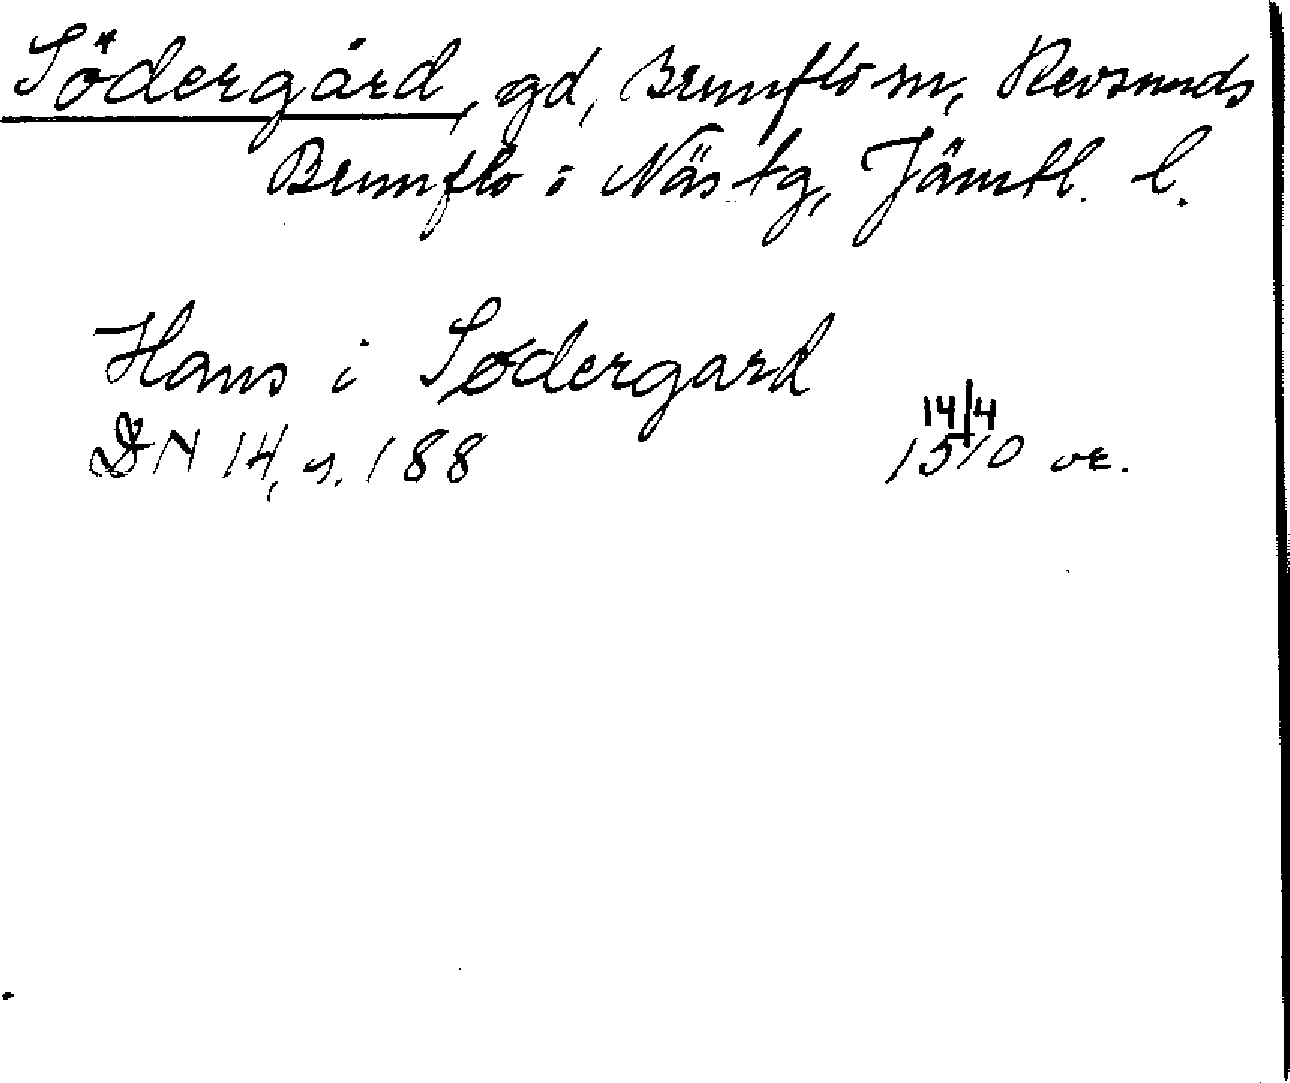 Södergård, gd, Brunflo sn, Revsunds
Brunflo o Näs tg, Jämtl. l.
Hans i Sødergard
14/4
DN 14, s. 188 1510 or.